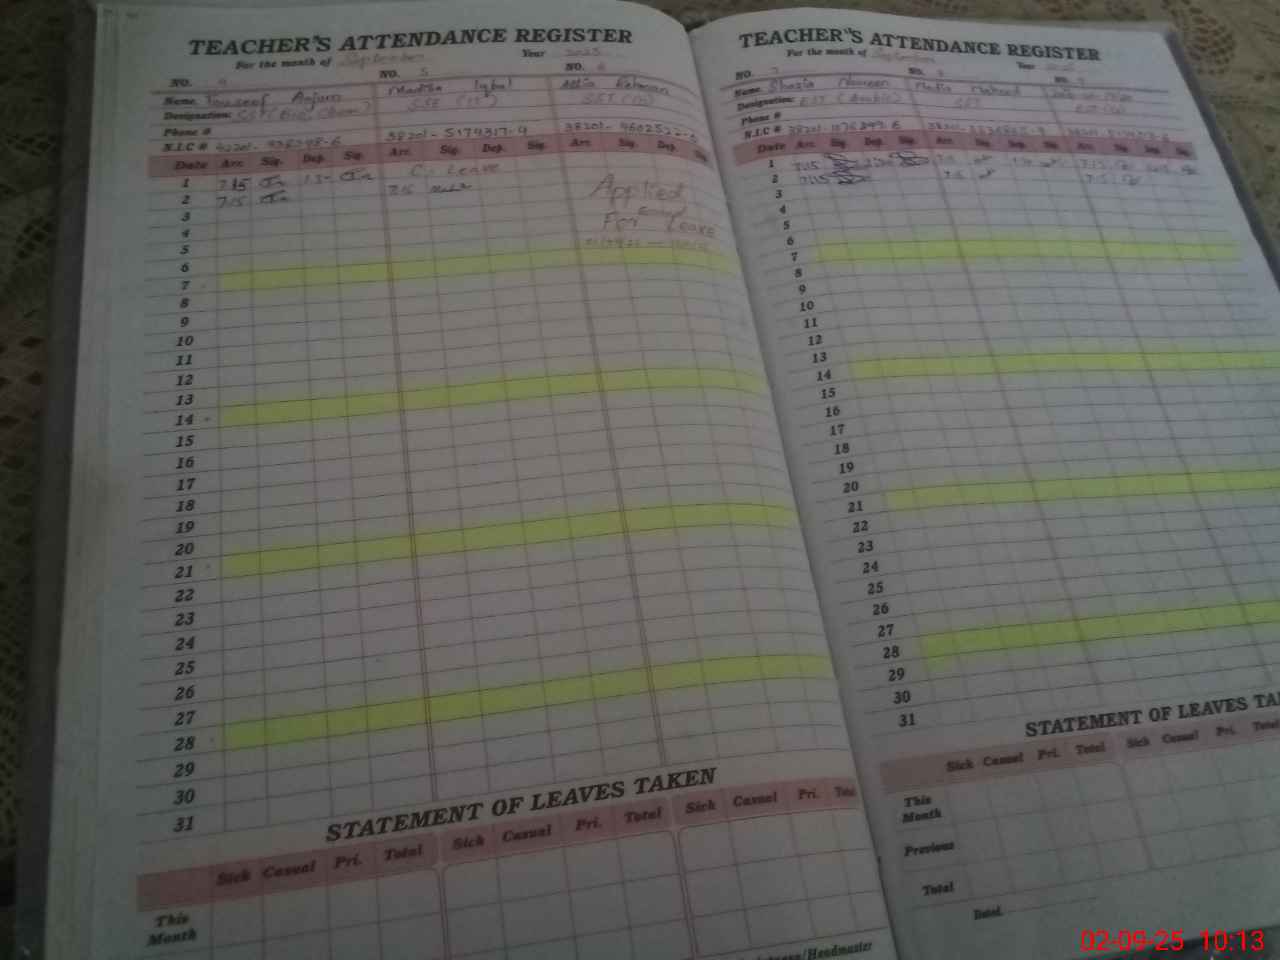 TEACHER'S ATTENDANCE REGISTER
For the month of September Year 2025
NO. 4 NO. 5 NO. 6
Name Yousaf Anjum Madiha Iqbal Attia Rehman
Designation: SST (Bio/Chem) SSE (IT)
Phone #
N.I.C # 38201-5179317-9
Date Arr. Sig. Dep. Sig. Arr. Sig. Dep. Sig. Arr. Sig. Dep. Sig.
1 7:15 C. Leave
2 7:15 7:15 Applied
3 For Leave
4
5
6
7
8
9
10
11
12
13
14
15
16
17
18
19
20
21
22
23
24
25
26
27
28
29
30
31
STATEMENT OF LEAVES TAKEN
Sick Casual Pri. Total Sick Casual Pri. Total Sick Casual Pri. Total
This
Month
/Headmaster
TEACHER'S ATTENDANCE REGISTER
For the month of September Year
NO. 7 NO. 8 NO. 9
Name Shazia Noureen Nadia
Designation: EST (Arabic) EST
Phone #
N.I.C #
Date Arr. Sig. Dep. Sig. Arr. Sig. Dep. Sig. Arr. Sig. Dep. Sig.
1 7:15 7:15 7:15
2 7:15 7:15 7:15
3
4
5
6
7
8
9
10
11
12
13
14
15
16
17
18
19
20
21
22
23
24
25
26
27
28
29
30
31
STATEMENT OF LEAVES TA
Sick Casual Pri. Total Sick Casual Pri. Total
This
Month
Previous
Total
Dated
02-09-25 10:13